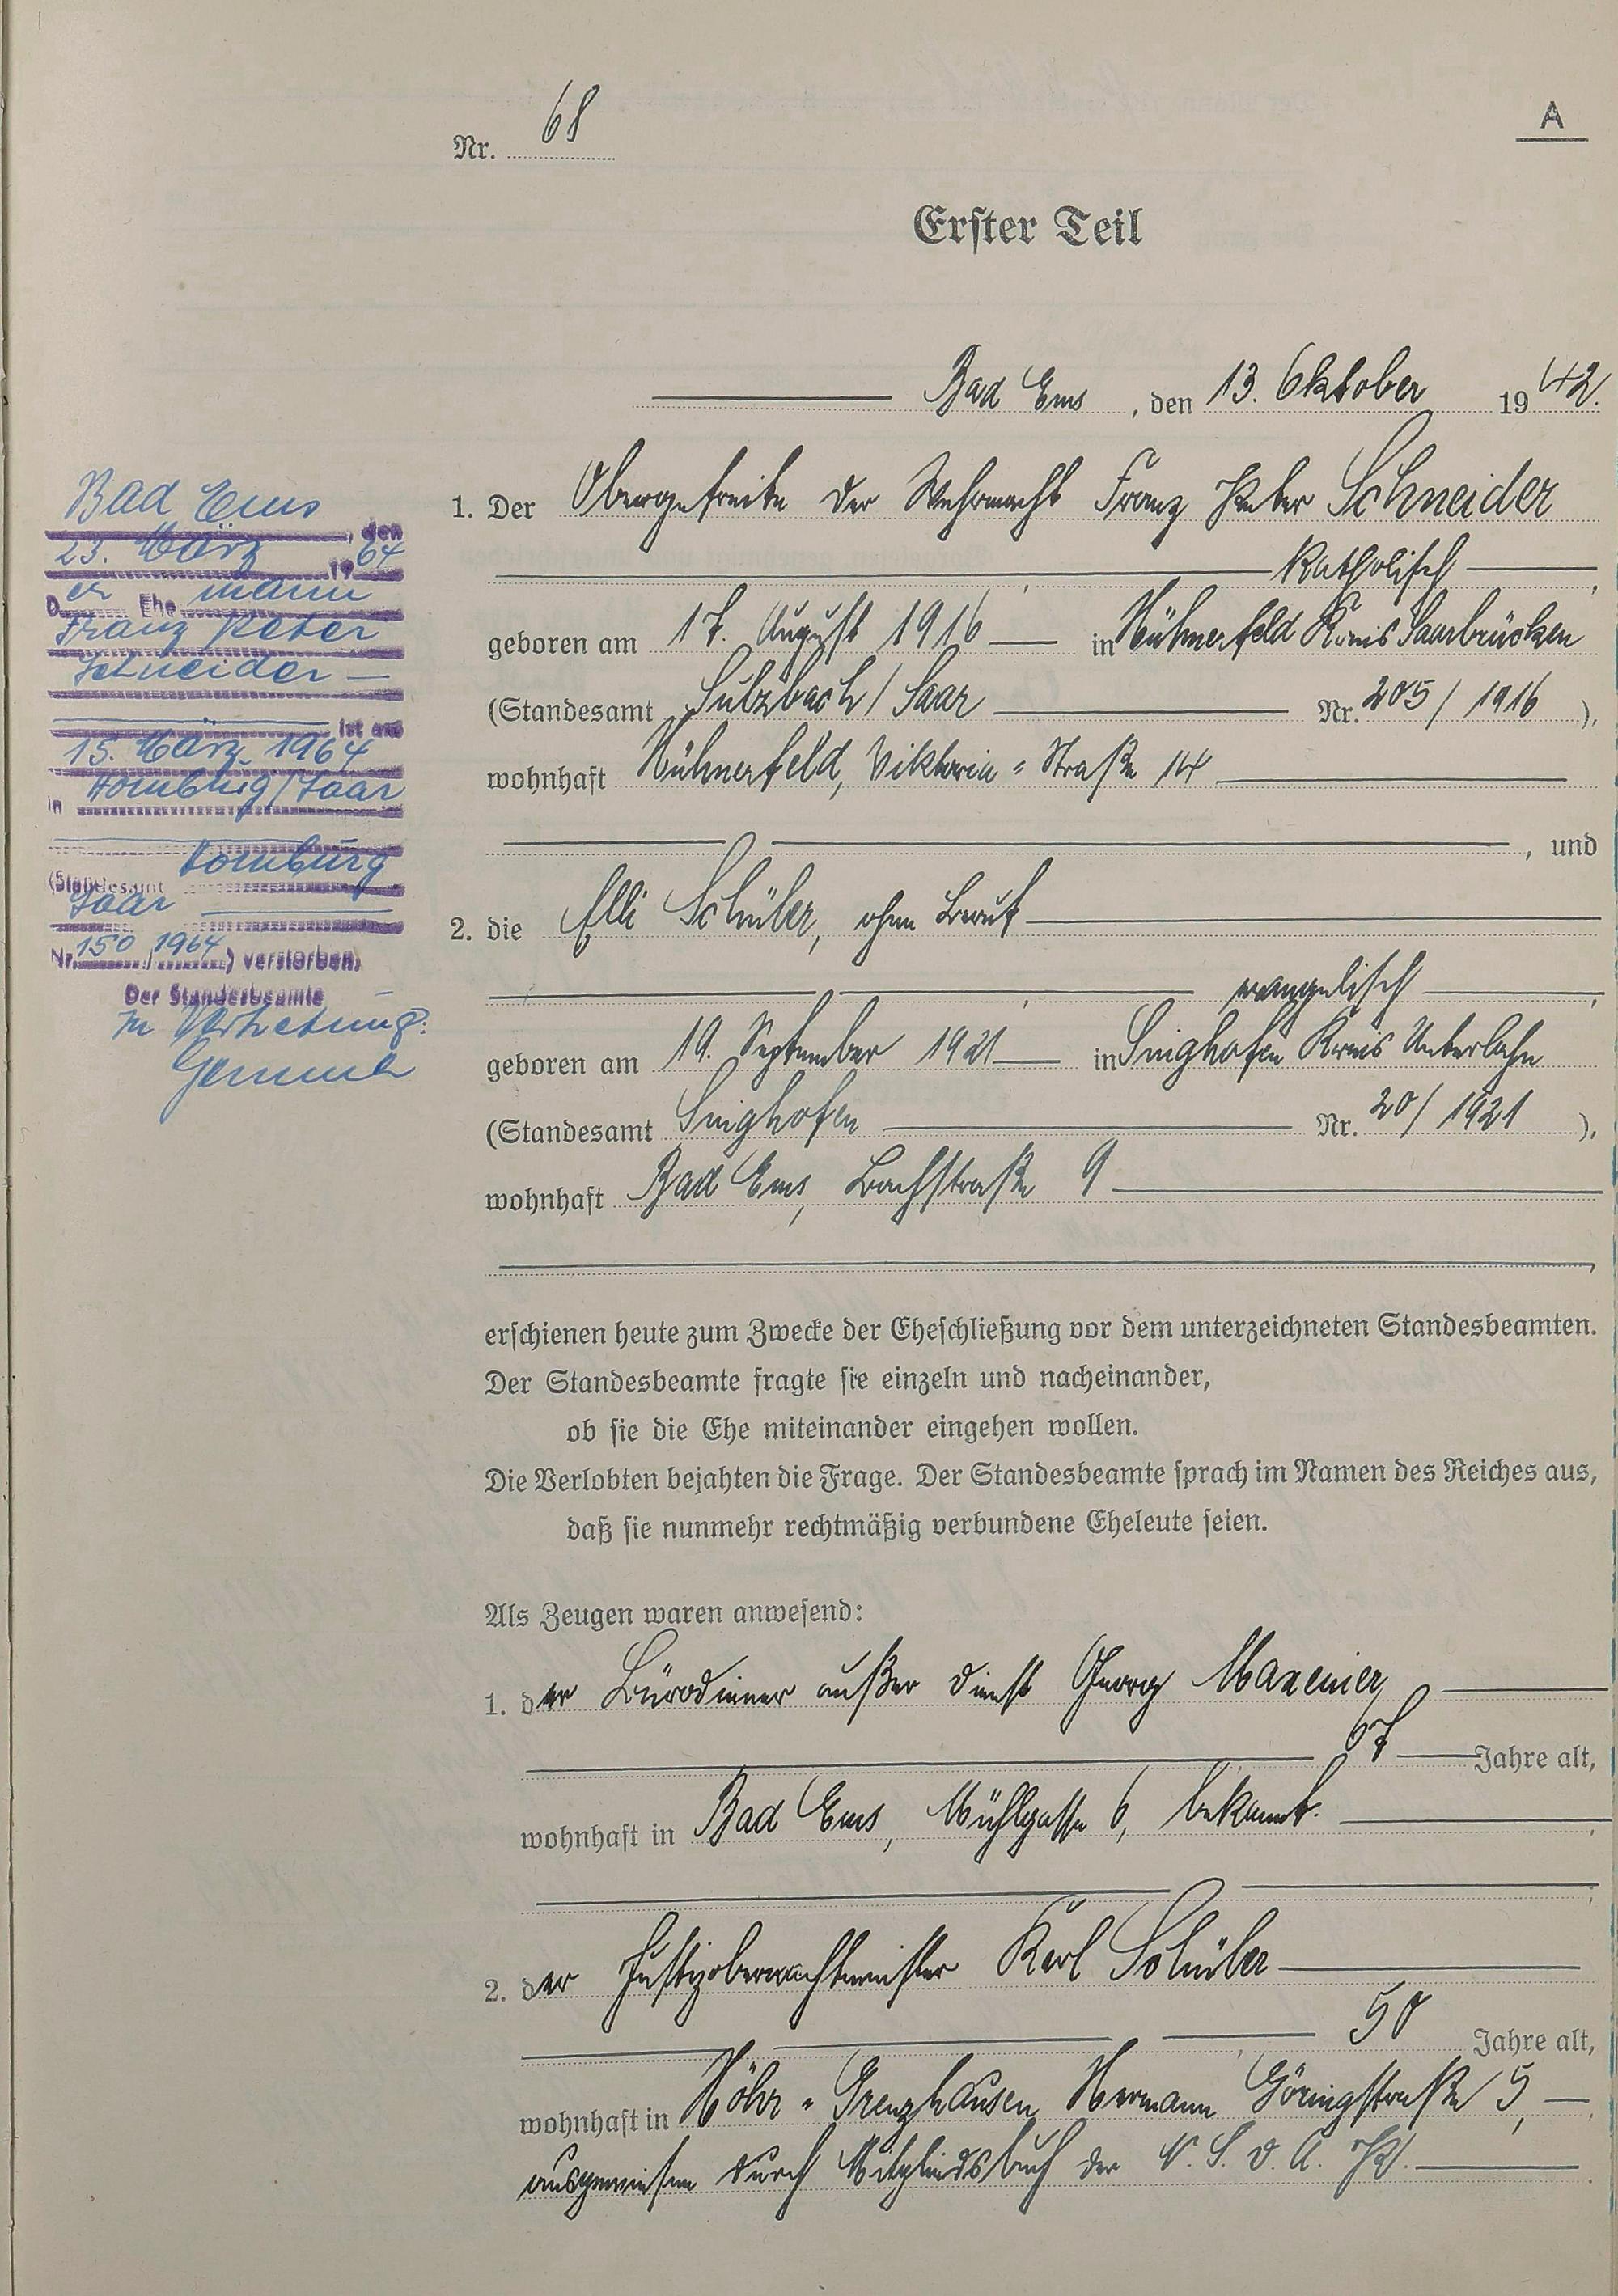 A
Nr. 68
Erster Teil
Bad Ems, den 13. Oktober 1942.
1. Der Obergefreite der Wehrmacht Franz Peter Schneider
katholisch,
geboren am 17. August 1916 in Hühnerfeld Kreis Saarbrücken
(Standesamt Sulzbach/Saar Nr. 205/1916),
wohnhaft Hühnerfeld, Viktoria-Straße 14
, und
2. die Elli Schüler, ohne Beruf
evangelisch,
geboren am 19. September 1921 in Singhofen Kreis Unterlahn
(Standesamt Singhofen Nr. 20/1921),
wohnhaft Bad Ems, Bachstraße 9
erschienen heute zum Zwecke der Eheschließung vor dem unterzeichneten Standesbeamten.
Der Standesbeamte fragte sie einzeln und nacheinander,
ob sie die Ehe miteinander eingehen wollen.
Die Verlobten bejahten die Frage. Der Standesbeamte sprach im Namen des Reiches aus,
daß sie nunmehr rechtmäßig verbundene Eheleute seien.
Als Zeugen waren anwesend:
1. der Bürodiener außer Dienst Georg Maxeiner
67 Jahre alt,
wohnhaft in Bad Ems, Mühlgasse 6, bekannt.
2. der Justizoberwachtmeister Karl Schüler
50 Jahre alt,
wohnhaft in Höhr-Grenzhausen Hermann Göringstraße 5,
ausgewiesen durch Mitgliedsbuch der N.S.D.A.P.
Bad Ems, den
23. März 1964
Der Ehemann
Franz Peter
Schneider
ist am
15. März 1964
in Homburg/Saar
(Standesamt Homburg
Saar
Nr. 150/1964) verstorben.
Der Standesbeamte
In Vertretung: